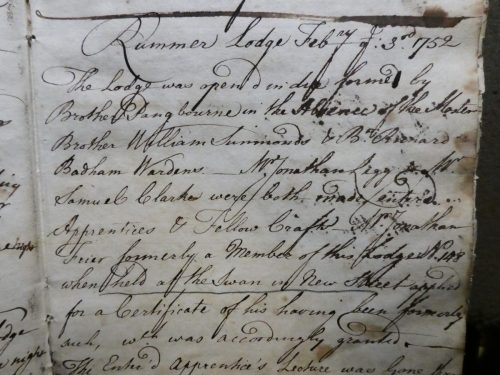 Rummer Lodge Febry ye 3rd 1752
The Lodge was open'd in due forme by
Brother Pangbourne in the Absence of the Master
Brother William Simmonds & Br Richard
Badham Wardens Mr Jonathan & Mr
Samuel Clarke were both made Enter'd
Apprentices & Fellow Crafts Mr Jonathan
formerly a Member of this Lodge No
when held at the Swan in New Street applied
for a Certificate of his having been formerly
such, wch was accordingly granted
The Enter'd Apprentice's Lecture was gone